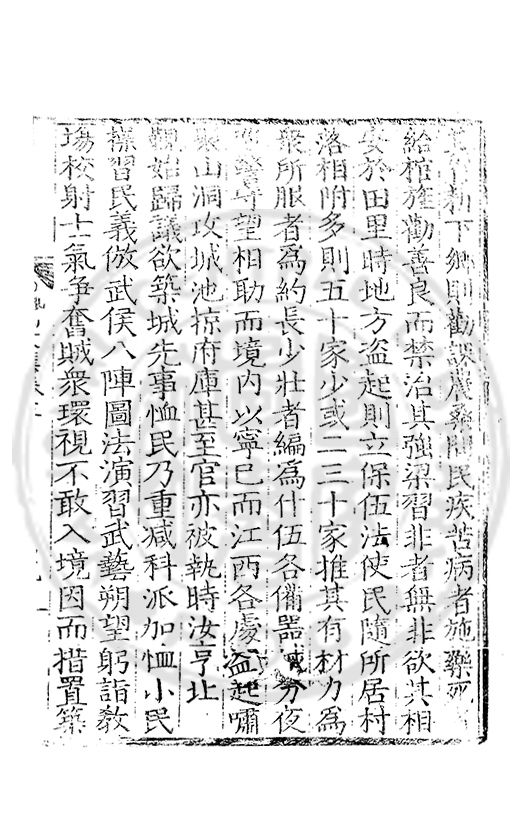 勸下鄉則勸課農桑問民疾苦病者施藥死
給棺旌勸善良而禁治其強梁習非者無非欲其相
安於田里時地方盗起則立保伍法使民隨所居村
落相附多則五十家少或二三十家推其有材力為
衆所服者為約長少壯者編為什伍各備器械分夜
廵警守望相助而境内以寧已而江西各處盗起嘯
聚山洞攻城池掠府庫甚至官亦被執時汝亨北
覲始歸議欲築城先事恤民乃重减科派加恤小民
操習民義倣武侯八陣圖法演習武藝朔望躬詣敎
塲校射士氣争奮賊衆環視不敢入境因而措置築